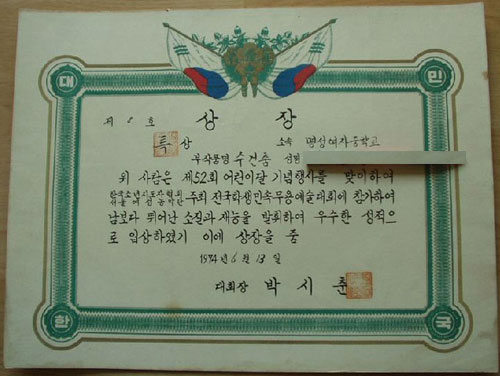 대 민
제 호 상 장
특상 소속 명성여자중학교
부 작품명 수건춤 성명
위 사람은 제52회 어린이달 기념행사를 맞이하여
한국소년지도자협회 주최 전국학생민속무용예술대회에 참가하여
남보다 뛰어난 소질과 재능을 발휘하여 우수한 성적으
로 입상하였기 이에 상장을 줌
1974년 6월 13일
대회장 박시춘
한 국